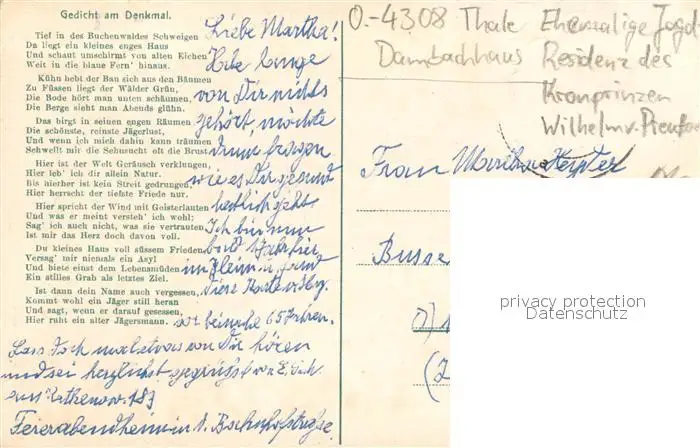 Gedicht am Denkmal.
Tief in des Buchenwaldes Schweigen
Da liegt ein kleines enges Haus
Und schaut umschirmt von alten Eichen
Weit in die blaue Fern' hinaus.
Kühn hebt der Bau sich aus den Bäumen
Zu Füssen liegt der Wälder Grün,
Die Bode hört man unten schäumen,
Die Berge sieht man Abends glühn.
Das birgt in seinen engen Räumen
Die schönste, reinste Jägerlust,
Und wenn ich mich dahin kann träumen
Schwellt mir die Sehnsucht oft die Brust.
Hier ist der Welt Geräusch verklungen,
Hier leb' ich dir allein Natur.
Bis hierher ist kein Streit gedrungen,
Hier herrscht der tiefste Friede nur.
Hier spricht der Wind mit Geisterlauten
Und was er meint versteh' ich wohl;
Sag' ich auch nicht, was sie vertrauten
Ist mir das Herz doch davon voll.
Du kleines Haus voll süssem Frieden
Versag' mir niemals ein Asyl
Und biete einst dem Lebensmüden
Ein stilles Grab als letztes Ziel.
Ist dann dein Name auch vergessen,
Kommt wohl ein Jäger still heran
Und sagt, wenn er darauf gesessen,
Hier ruht ein alter Jägersmann.
Liebe Martha!
Habe lange
von Dir nichts
gehört, möchte
wie es Dir
geht
Ich bin nun
bald 1 Jahr hier
im Heim u.
Diese Karte
beinahe 65 Jahren.
Lass doch mal etwas von Dir hören
und sei herzlichst gegrüßt von
aus Rathenow
Feierabendheim
O.-4308 Thale
Dambachhaus
Ehemalige Jagd
Residenz des
Kronprinzen
Wilhelm v. Preußen
Frau
Busse
privacy protection
Datenschutz